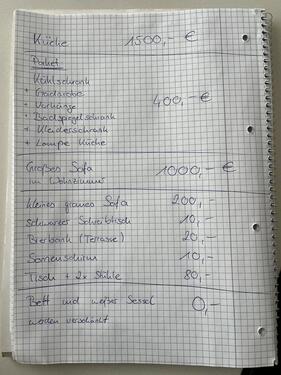 Küche 1500,- €
Paket
Kühlschrank
+ Garderobe
+ Vorhänge 400,- €
+ Badspiegelschrank
+ Kleiderschrank
+ Lampe Küche
Großes Sofa 1000,- €
im Wohnzimmer
kleines graues Sofa 200,-
schwarzer Schreibtisch 10,-
Bierbank (Terrasse) 20,-
Sonnenschirm 10,-
Tisch + 2x Stühle 80,-
Bett und weißer Sessel 0,-
werden verschenkt